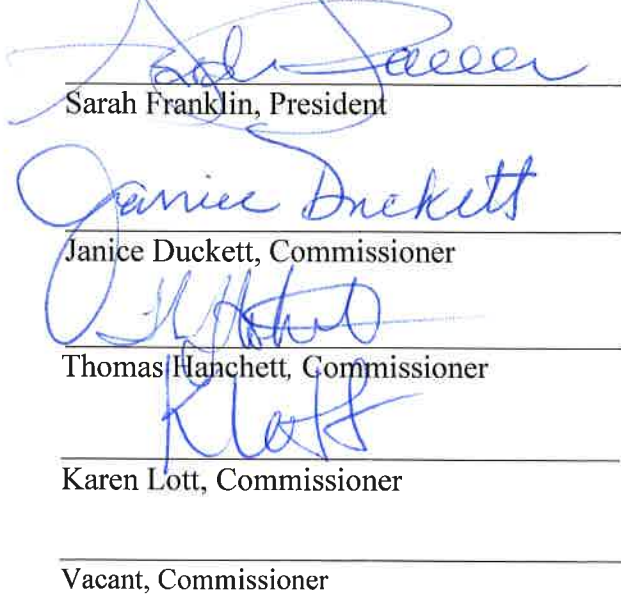 Sarah Franklin, President
Janice Duckett
Janice Duckett, Commissioner
Thomas Hanchett, Commissioner
K Lott
Karen Lott, Commissioner
Vacant, Commissioner